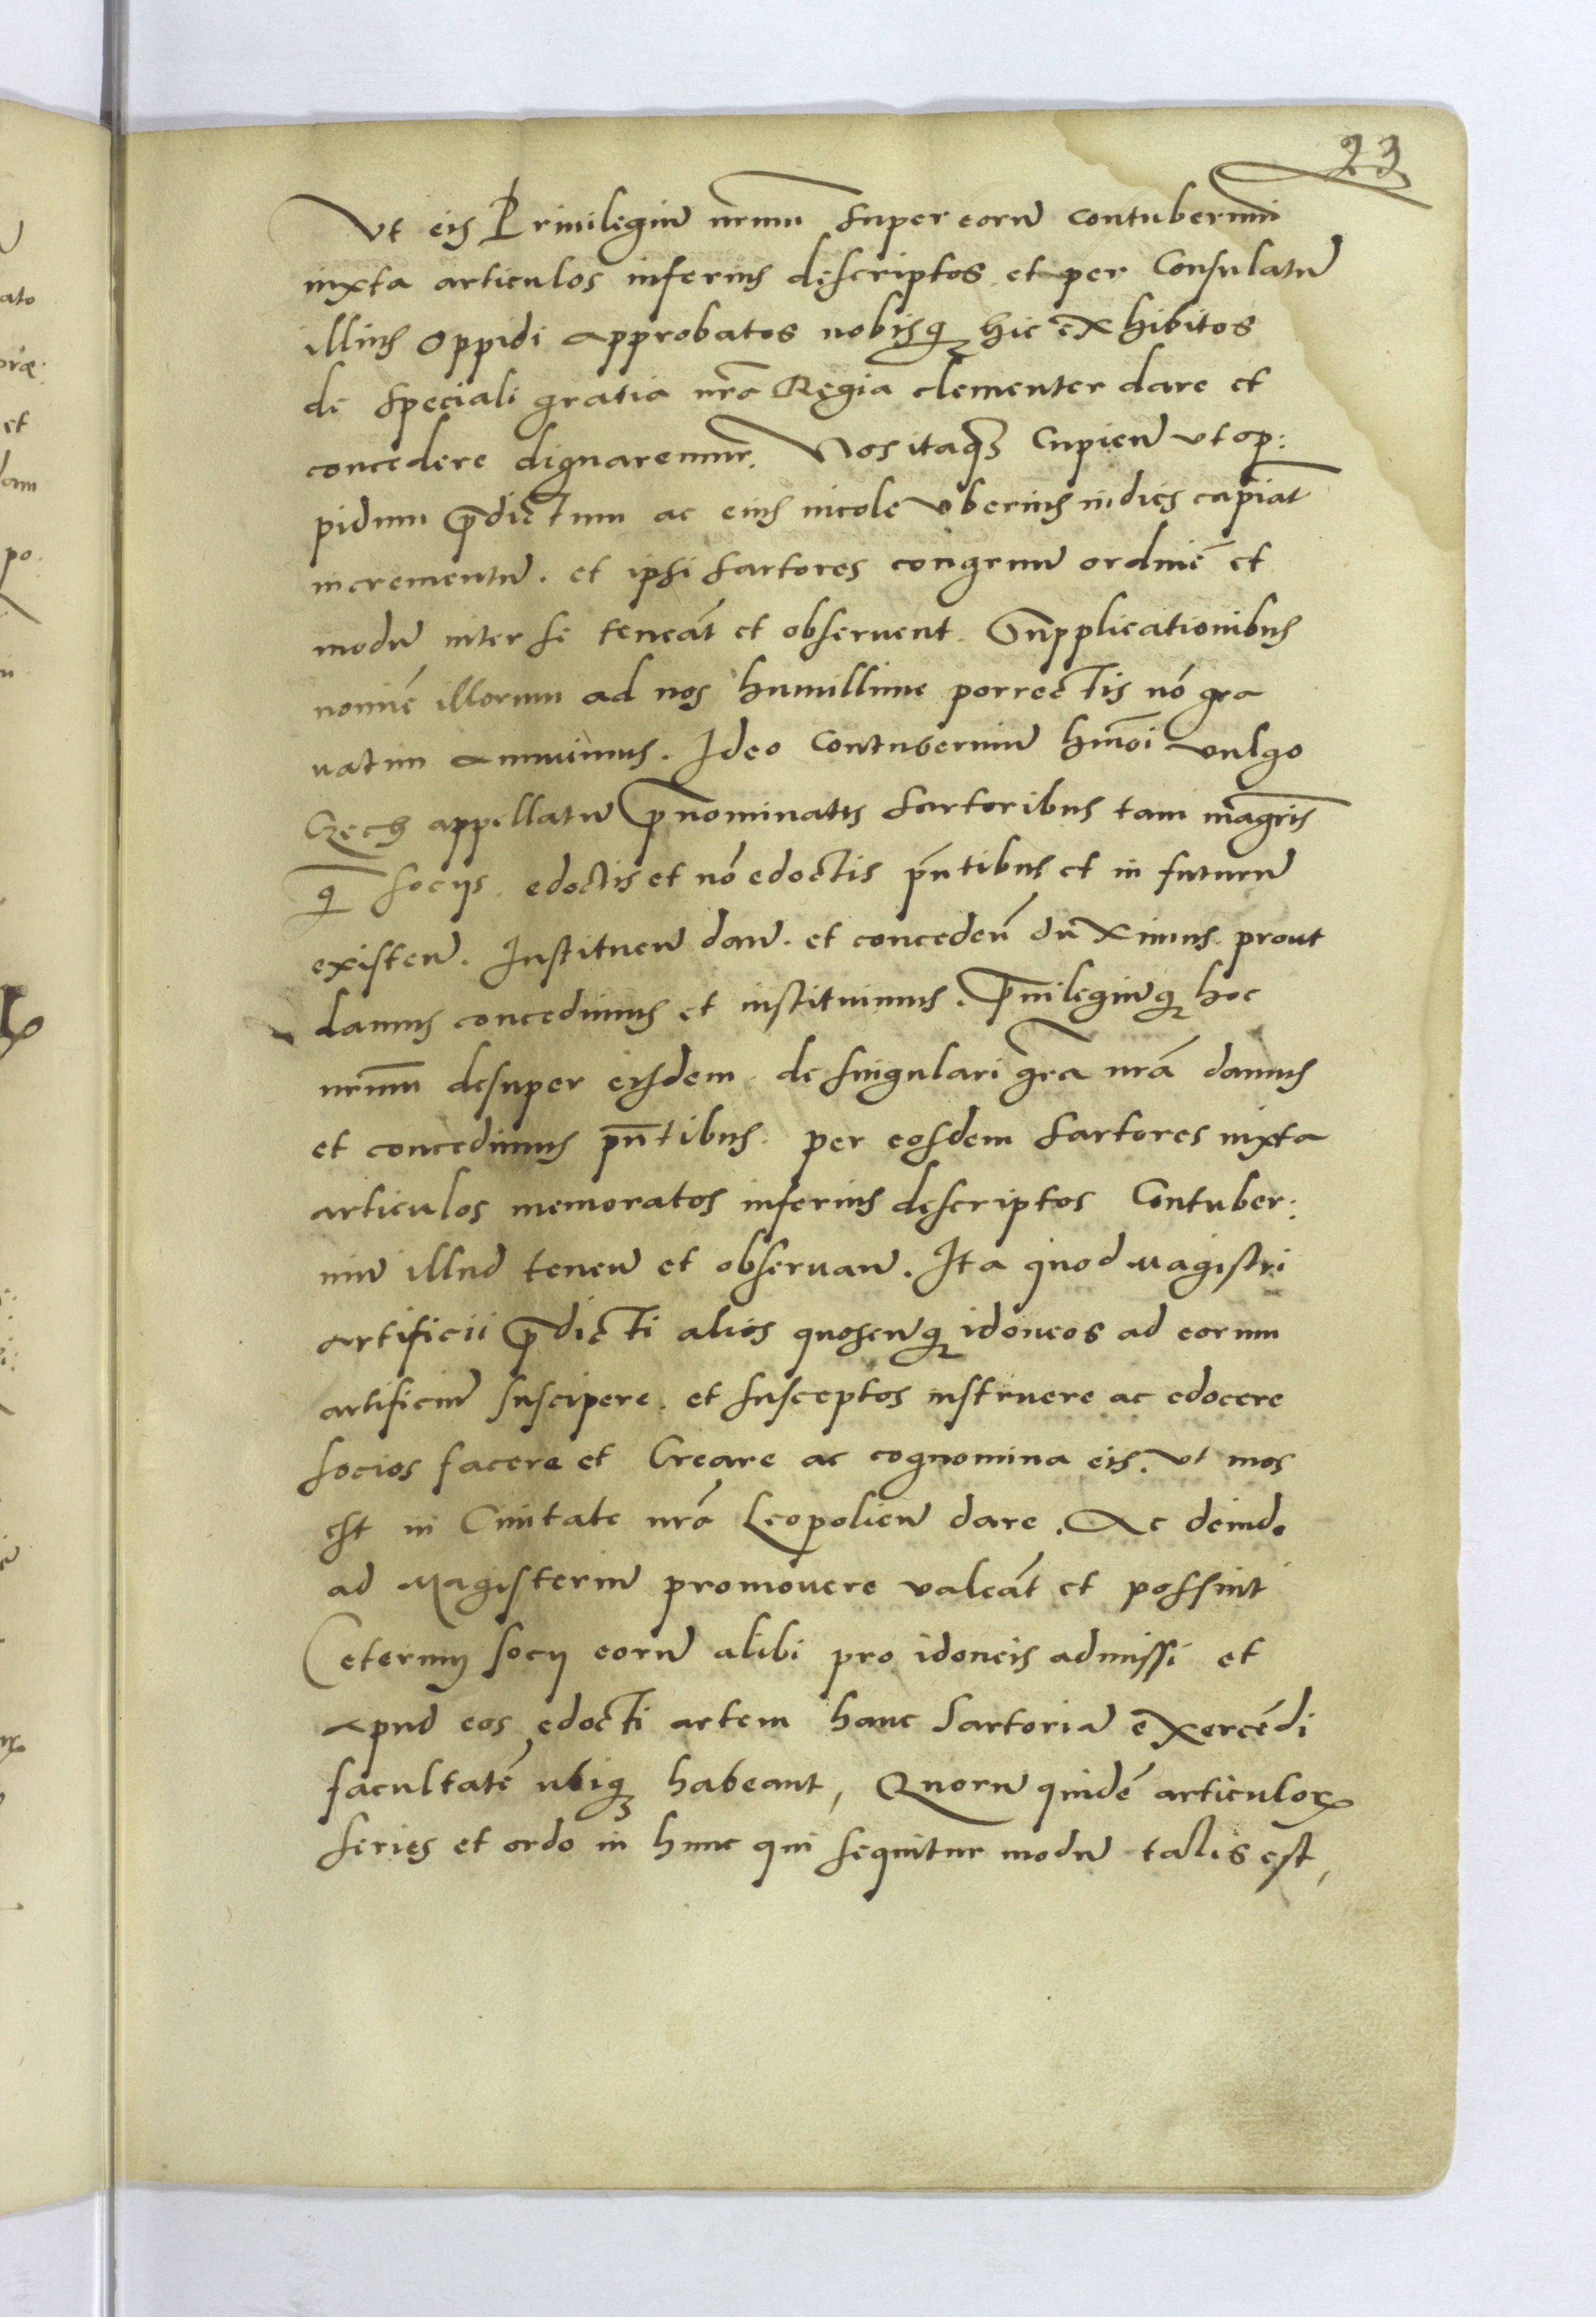 23
Vt eis Priuilegiũ nrm̃m super eorũ contubernii
iuxta articulos inferius descriptos et per Consulatũ
illius Oppidi approbatos nobisq₃ hic exhibitos
de speciali gratia nrã Regia clementer dare et
concedere dignaremur. Nos itaq₃ Cupieñ vt op:
pidum p̃dictum ac eius incole vberius indies capiãt
incrementũ. et ipsi sartores congruũ ordinẽ et
modũ inter se teneãt et obseruent. Supplicationibus
nomiẽ illorum ad nos humillime porrectis nõ gra
uatim annuimus. Ideo Contuberniũ hm̃oi vulgo
Czech appellatũ p̃nominatis sartoribus tam magr̃is
q̃ socijs edoctis et nõ edoctis pñtibus et in futurũ
existeñ. Instituenñ dañ. et concedeñ duximus prout
damus concedimus et instituimus. P̃uilegiũq₃ hoc
nrm̃m desuper eisdem de singulari gr̃a nrã damus
et concedimus pñtibus. per eosdem sartores iuxta
articulos memoratos inferius descriptos Contuber:
niũ illud teneñ et obseruañ. Ita quod magistri
artificii p̃dicti alios quoscũq₃ idoneos ad eorum
artificiũ suscipere. et susceptos instruere ac edocere
socios facere et Creare ac cognomina eis. vt mos
est in Ciuitate nrã Leopolieñ dare. Ac deinde
ad Magisteriũ promouere valeãt et possint
Ceterum socij eorũ alibi pro idoneis admissi et
apud eos edocti artem hanc Sartoriã exercẽdi
facultatẽ ubiq₃ habeant, Quorũ quidẽ articulorꝝ
series et ordo in hunc qui sequitur modũ talis est,